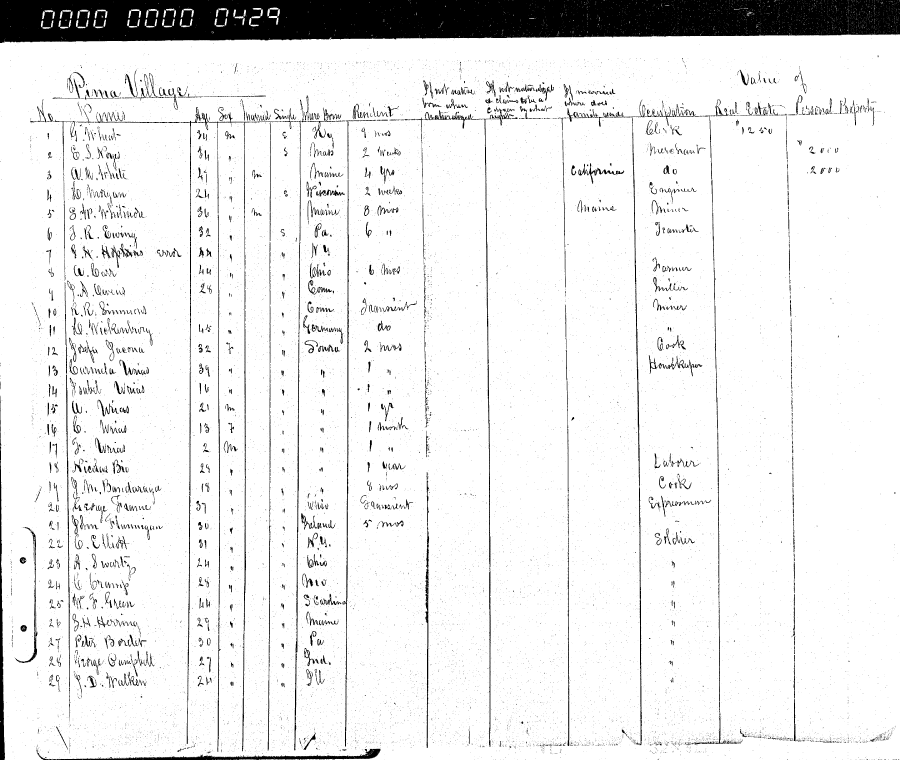 0000 0000 0429
Pima Village
Value of
No. Names Age Sex Married Single Where Born Resident If not native born when naturalized If not naturalized If married where does family reside Occupation Real Estate Personal Property
1 G. Wheat 34 m s Ky 9 mos Clerk "1250
2 E. S. Noys 34 " s Mass 2 weeks Merchant "2000
3 A. M. White 47 " m Maine 4 yrs California do 2000
4 D. Morgan 24 " s Wisconsin 2 weeks Engineer
5 36 " m Maine 8 mos Maine Miner
6 J. R. Ewing 32 " s Pa. 6 " Teamster
7 Hopkins error 44 " " N Y.
8 A. Carr 44 " " Ohio 6 mos Farmer
9 J. A. Owens 28 " " Conn. " Miller
10 R. R. Simmons " " Conn Transient Miner
11 Wickenburg 45 " " Germany do "
12 Josefa 32 F " Sonora 2 mos Cook
13 Urias 39 " " " 1 " Housekeeper
14 Isabel Urias 16 " " " 1 "
15 A. Urias 21 m " " 1 yr
16 C. Urias 13 F " " 1 month
17 F. Urias 2 M " " 1 "
18 Nicolas 29 " " " 1 year Laborer
19 J. M. 18 " " " 8 mos Cook
20 George 37 " " Ohio Transient Expressman
21 John Flunnigan 30 " " Ireland 5 mos -
22 C. Elliott 31 " " N. Y. Soldier
23 A. Swartz 24 " " Ohio "
24 C Crump 28 " " Mo "
25 W. F. Green 44 " " S Carolina "
26 J. H. Herring 29 " " Maine "
27 Peter Border 30 " " Pa "
28 George Campbell 27 " " Ind. "
29 J. D. Walken 24 " " Ill "